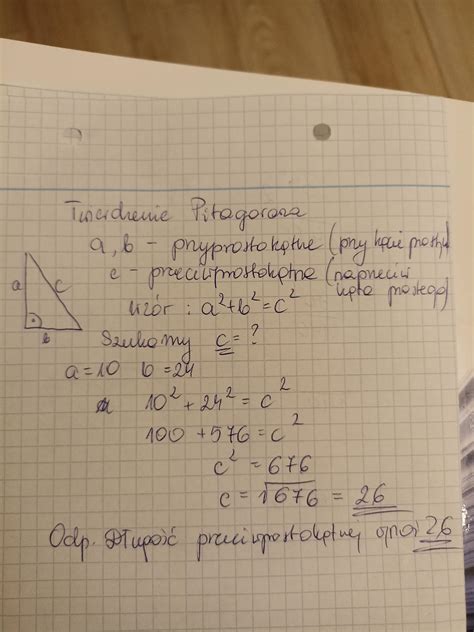 Twierdzenie Pitagorasa
a, b - przyprostokątne (przy kącie prostym
c - przeciwprostokątna (naprzeciw
kąta prostego)
wzór : a²+b² = c²
a
c
b
Szukamy c = ?
a = 10 b = 24
10² + 24² = c²
100 + 576 = c²
c² = 676
c = √676 = 26
Odp. Długość przeciwprostokątnej wynosi 26